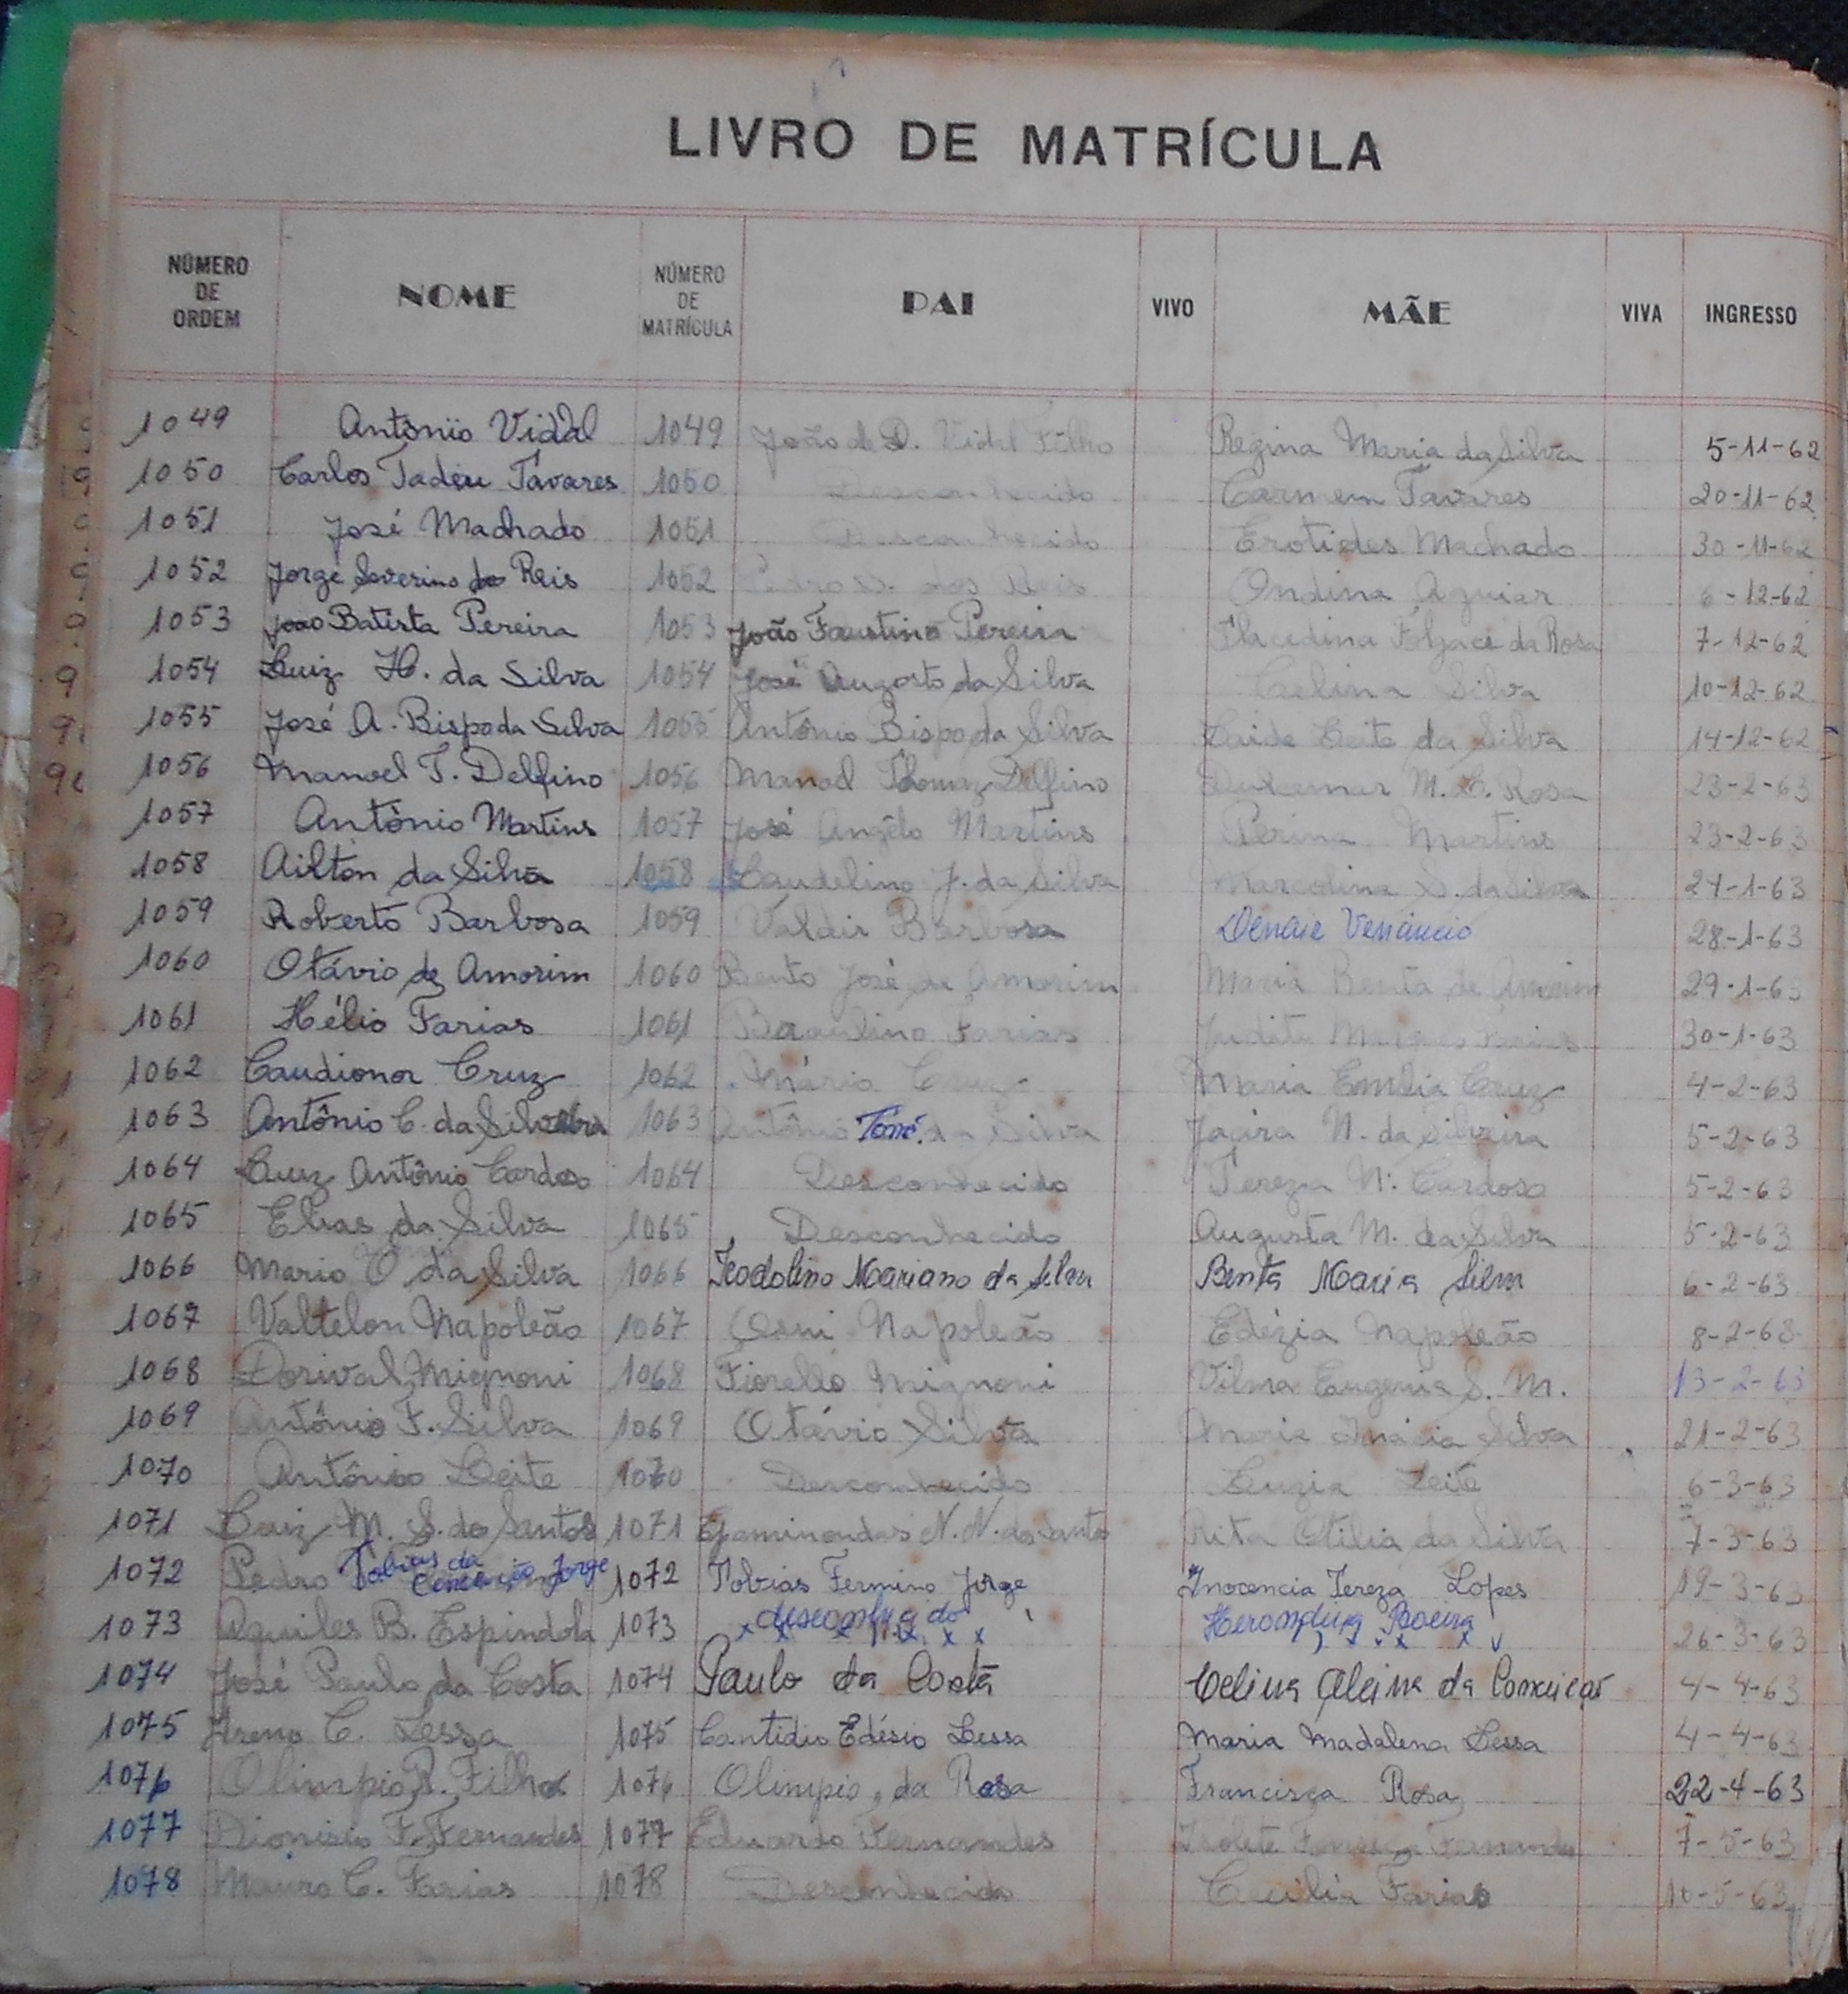 LIVRO DE MATRÍCULA
NÚMERO DE ORDEM NOME NÚMERO DE MATRÍCULA PAI VIVO MÃE VIVA INGRESSO
1049 Antônio Vidal 1049 João de D. Vidal Filho Regina Maria da Silva 5-11-62
1050 Carlos Tadeu Tavares 1050 Desconhecido Carmem Tavares 20-11-62
1051 José Machado 1051 Desconhecido Erotides Machado 30-11-62
1052 Jorge Severino do Reis 1052 Pedro S. dos Reis Ondina Aguiar 6-12-62
1053 João Batista Pereira 1053 João Faustino Pereira da Rosa 7-12-62
1054 Luiz H. da Silva 1054 José Augosto da Silva Celina Silva 10-12-62
1055 José A. Bispo da Silva 1055 Antônio Bispo da Silva da Silva 14-12-62
1056 Manoel T. Delfino 1056 Manoel Thomaz Delfino M. C. Rosa 23-2-63
1057 Antônio Martins 1057 José Angêlo Martins Martins 23-2-63
1058 Ailton da Silva 1058 Laudelino J. da Silva Marcolina S. da Silva 24-1-63
1059 Roberto Barbosa 1059 Valdir Barbosa Venâncio 28-1-63
1060 Otávio de Amorim 1060 Bento José de Amorim Maria Benta de Amorim 29-1-63
1061 Hélio Farias 1061 Braulino Farias Judite Farias 30-1-63
1062 Caudionor Cruz 1062 Mário Cruz Maria Emilia Cruz 4-2-63
1063 Antônio C. da Silveira 1063 Antônio Tomé da Silva Jacira N. da Silveira 5-2-63
1064 Luiz Antônio Cardoso 1064 Desconhecido Tereza N. Cardoso 5-2-63
1065 Elias da Silva 1065 Desconhecido Augusta M. da Silva 5-2-63
1066 Mario O da Silva 1066 Teodolino Mariano da Silva Benta Maria Silva 6-2-63
1067 Valtelon Napoleão 1067 Osni Napoleão Edézia Napoleão 8-2-63
1068 Dorival Mignoni 1068 Fiorello Mignoni Vilma Eugenia S. M. 13-2-63
1069 Antônio F. Silva 1069 Otávio Silva Maria Inácia Silva 21-2-63
1070 Antônio Leite 1070 Desconhecido Luzia Leite 6-3-63
1071 Luiz M. S. dos Santos 1071 Epaminondas N. N. dos Santos Rita Otilia da Silva 7-3-63
1072 Pedro Tobias da Conceição Jorge 1072 Tobias Fermino Jorge Inocencia Tereza Lopes 19-3-63
1073 Aquiles B. Espindola 1073 desconhecido Herondina Boeira 26-3-63
1074 José Paulo da Costa 1074 Paulo da Costa Celina da Conceição 4-4-63
1075 Ireno C. Lessa 1075 Cantidio Edésio Lessa Maria Madalena Lessa 4-4-63
1076 Olimpio R. Filho 1076 Olimpio da Rosa Francisca Rosa 22-4-63
1077 Dionisio F. Fernandes 1077 Eduardo Fernandes Fernandes 7-5-63
1078 Mauro C. Farias 1078 Desconhecido Cecília Farias 10-5-63